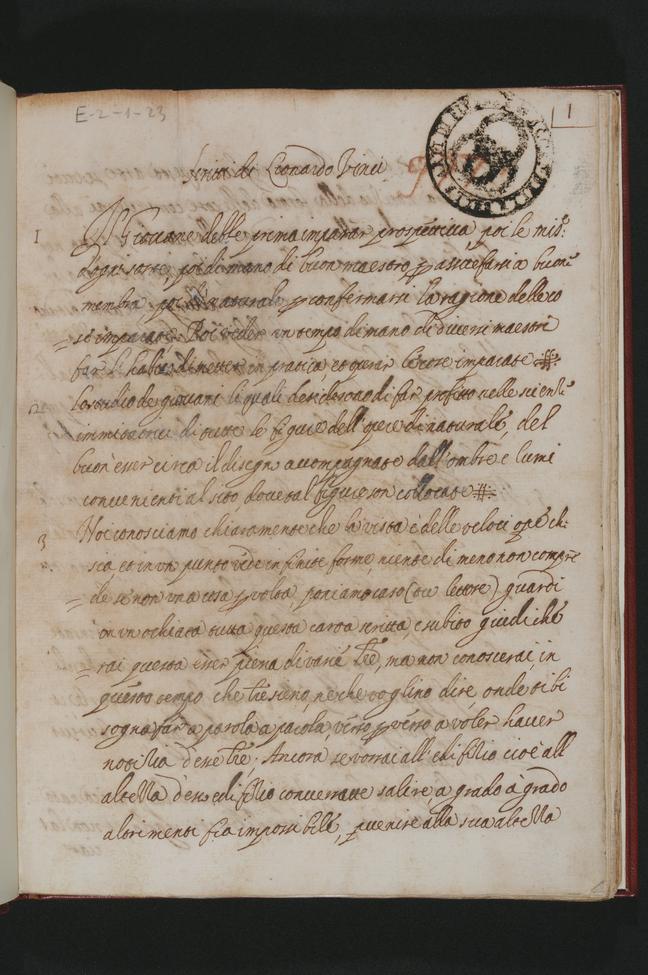 E-2-1-23
1
Scritti di Lionardo Vinci
1 Il Giovane debbe prima imparar prospettiva poi le mis.e
d'ogni sorte, poi di mano di buon maestro p assuefarsi a buone
membra, poi di naturale p confermarsi la ragione delle co
se imparate. Poi veder un tempo di mano di diversi maestri
far l'habito di metter in pratica et operar le cose imparate
2 Lo studio de giovani li quali desiderano di far profitto nelle scientie
immitatrici di tutte le figure dell'opere di naturale, del
buon'esser circa il disegno accompagnato dall'ombre e lumi
convenienti al sito, dove tal figure son collocate
3 Noi conosciamo chiaramente che la vista è delle veloci op.e che
sia, et in un punto vide infinite forme, niente di meno non compre
de se non una cosa p volta, poniamo caso (tu lettore) guardi
in un'ochiata tutta questa carta scritta, e subito giudiche
rai questa esser piena di varie lre, ma non conoscerai, in
questo tempo che lre sieno, ne che voglino dire, onde ti bi
sogna far a parola a parola, verso p verso a voler haver
notitia d'esse lre; Ancora se vorrai all'edifitio cioè all
altezza d'esso edifitio converratte salire, a grado à grado
altrimente fia impossibile, pvenire alla sua altezza